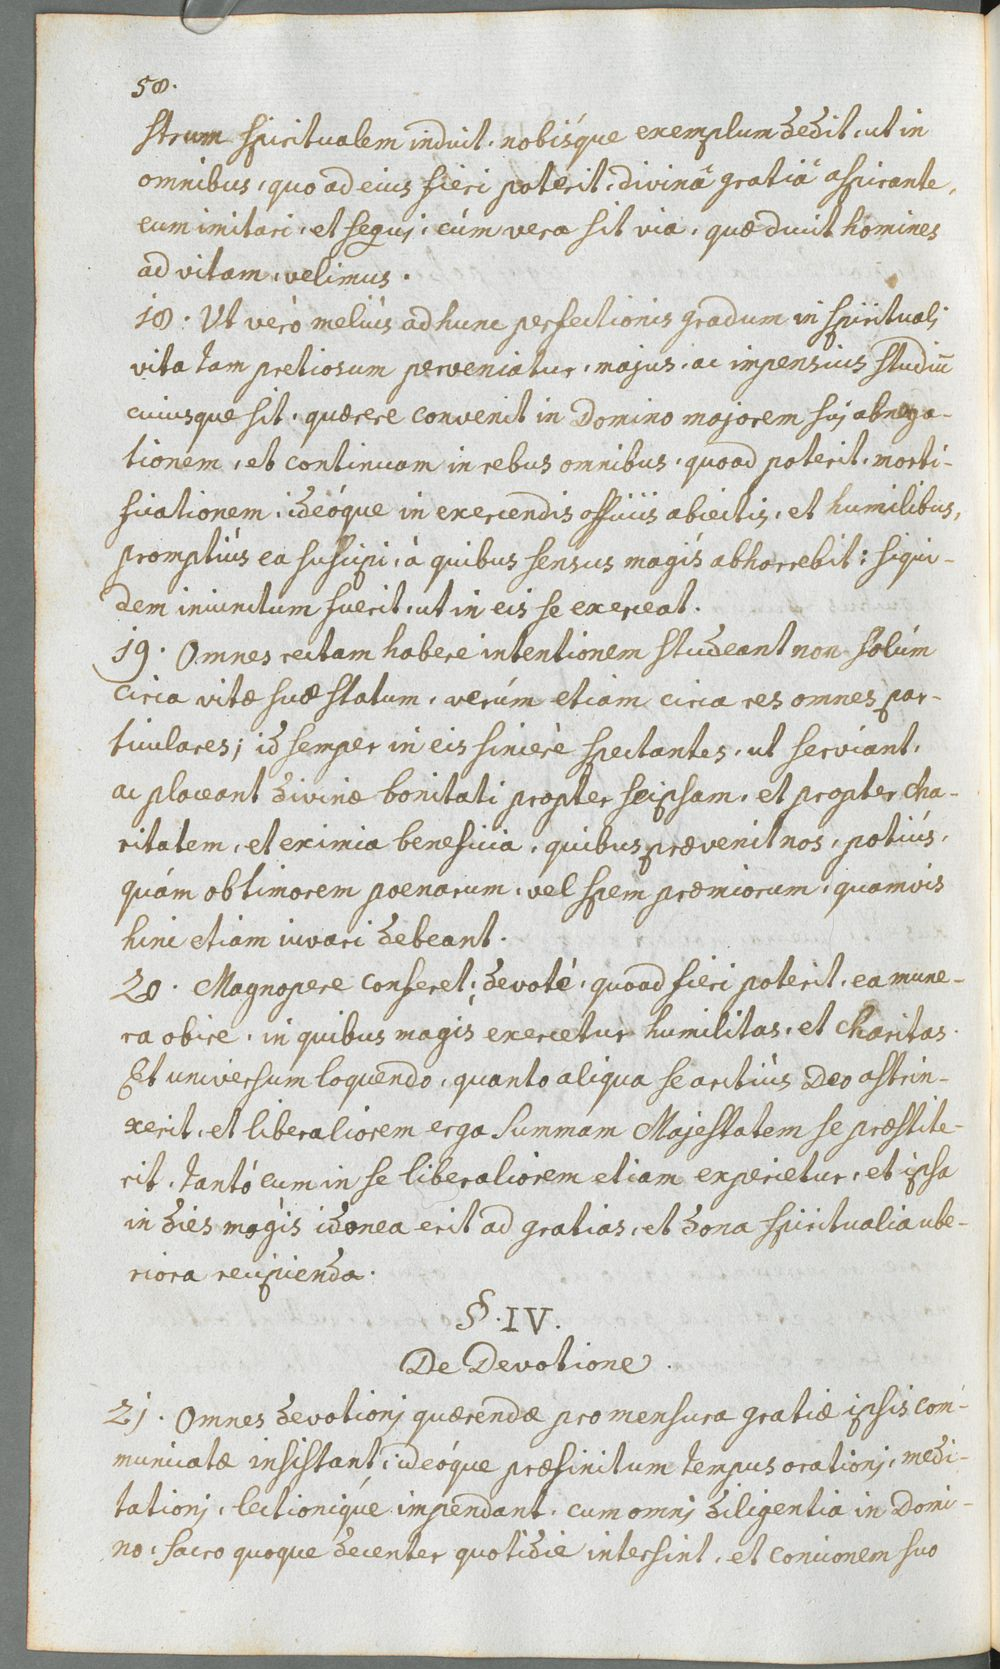 58.
strum spiritualem induit, nobísque exemplum dedit, ut in
omnibus, quo ad eius fieri poterit, divinâ gratiâ aspirante,
eum imitari, et sequj, cúm vera sit via, quæ ducit homines
ad vitam, velimus.
18. Ut verò meliús ad hunc perfectionis gradum in spiritualj
vita tam pretiosum perveniatur, majus, ac impensius studiū
cuiusque sit, quærere convenit in Domino majorem suj abnega-
tionem, et continuam in rebus omnibus, quoad poterit, morti-
ficationem, ideóque in exercendis officiis abiectis, et humilibus,
promptiús ea suscipi, à quibus sensus magis abhorrebit: siqui-
dem iniunctum fuerit, ut in eis se exerceat.
19. Omnes rectam habere intentionem studeant non solúm
circa vitæ suæ statum, verúm etiam circa res omnes par-
ticulares; id semper in eis sincerè spectantes, ut serviant,
ac placeant divinæ bonitati propter seipsam, et propter cha-
ritatem, et eximia beneficia, quibus prævenit nos, potiús,
quám ob timorem poenarum, vel spem præmiorum, quamvis
hinc etiam iuvari debeant.
20. Magnopere conferet; devotè, quoad fieri poterit, ea mune-
ra obire, in quibus magis exercetur humilitas, et charitas.
Et universum loquendo, quanto aliqua se arctiús Deo astrin-
xerit, et liberaliorem erga Summam Majestatem se præstite-
rit, tantó eum in se liberaliorem etiam experietur, et ipsa
in dies magis idonea erit ad gratias, et dona spiritualia ube-
riora recipienda.
§. IV.
De Devotione.
21. Omnes devotionj quærendæ pro mensura gratiæ ipsis com-
municatæ insistant, ideóque præfinitum tempus orationj, medi-
tationj, lectioniqúe impendant, cum omnj diligentia in Domi-
no, sacro quoque decenter quotidie intersint, et concionem suo